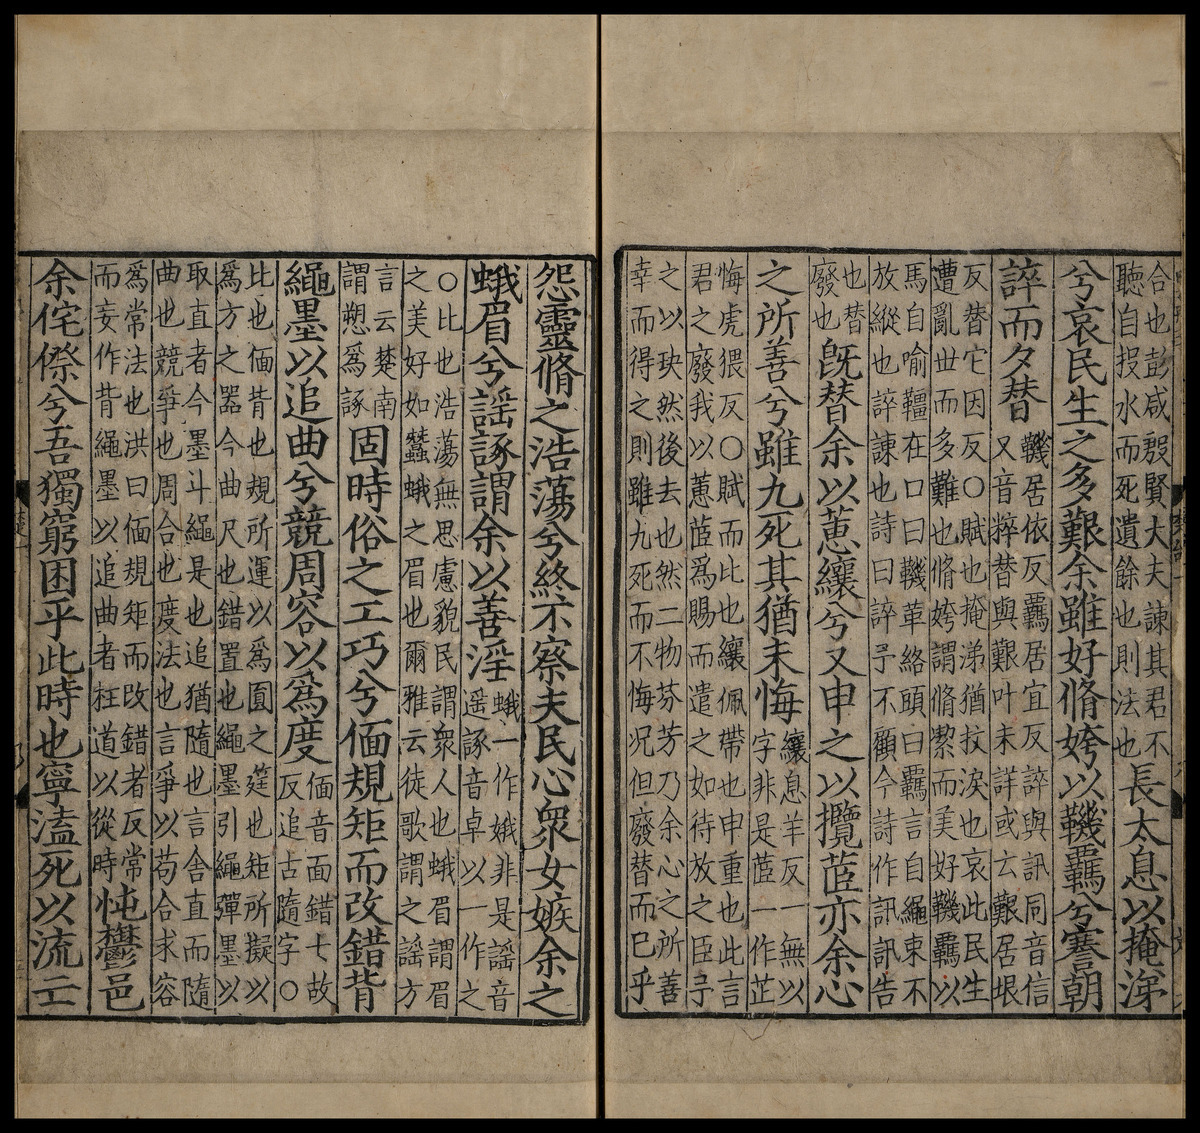 合也彭咸殷賢大夫諫其君不
聽自投水而死遺餘也則法也
長太息以掩涕
兮哀民生之多艱余雖好脩姱以鞿羈兮謇朝
誶而夕替
鞿居依反羈居宜反誶與訊同音信
又音粹替與艱叶未詳或云艱居垠
反替它因反○賦也掩涕猶抆淚也哀此民生
遭亂世而多難也脩姱謂脩潔而美好鞿羈以
馬自喻韁在口曰鞿革絡頭曰羈言自繩束不
放縱也誶諫也詩曰誶予不顧今詩作訊訊告
也替
廢也
旣替余以蕙纕兮又申之以攬茝亦余心
之所善兮雖九死其猶未悔
纕息羊反一無以
字非是茝一作芷
悔虎猥反○賦而比也纕佩帶也申重也此言
君之廢我以蕙茝爲賜而遣之如待放之臣予
之以玦然後去也然二物芬芳乃余心之所善
幸而得之則雖九死而不悔况但廢替而已乎
怨靈脩之浩蕩兮終不察夫民心衆女嫉余之
蛾眉兮謡諑謂余以善淫
蛾一作娥非是謡音
遥諑音卓以一作之
○比也浩蕩無思慮貌民謂衆人也蛾眉謂眉
之美好如蠶蛾之眉也爾雅云徒歌謂之謡方
言云楚南
謂愬爲諑
固時俗之工巧兮偭規矩而改錯背
繩墨以追曲兮競周容以爲度
偭音面錯七故
反追古隨字○
比也偭背也規所運以爲圓之筳也矩所擬以
爲方之器今曲尺也錯置也繩墨引繩彈墨以
取直者今墨斗繩是也追猶隨也言舍直而隨
曲也競爭也周合也度法也言爭以苟合求容
爲常法也洪曰偭規矩而改錯者反常
而妄作背繩墨以追曲者枉道以從時
忳鬱邑
余侘傺兮吾獨窮困乎此時也寧溘死以流亡